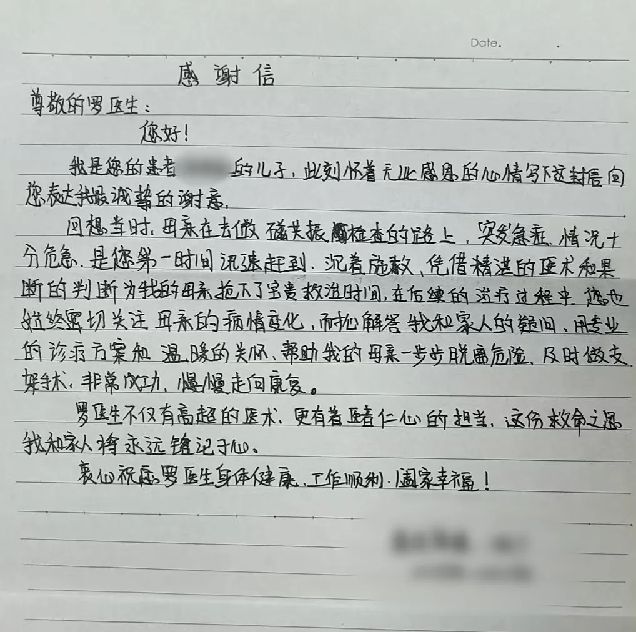 Date.
感谢信
尊敬的罗医生：
您好！
我是您的患者 的儿子，此刻怀着无比感恩的心情写下这封信向
您表达我最诚挚的谢意。
回想当时，母亲在去做 磁共振检查的路上，突发急症，情况十
分危急，是您第一时间迅速赶到，沉着施救，凭借精湛的医术和果
断的判断为我的母亲抢下了宝贵救治时间，在后续的治疗过程中，您也
始终密切关注母亲的病情变化，耐心解答我和家人的疑问，用专业
的诊疗方案和温暖的关怀，帮助我的母亲一步步脱离危险，及时做支
架手术，非常成功，慢慢走向康复。
罗医生不仅有高超的医术，更有着医者仁心的担当，这份救命之恩
我和家人将永远铭记于心。
衷心祝愿罗医生身体健康，工作顺利，阖家幸福！